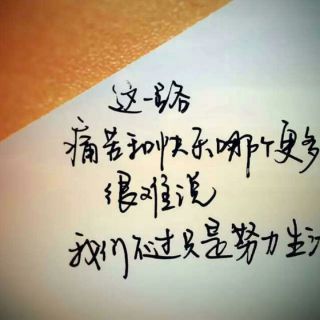 这一路
痛苦和快乐哪个更多
很难说
我们不过只是努力生活